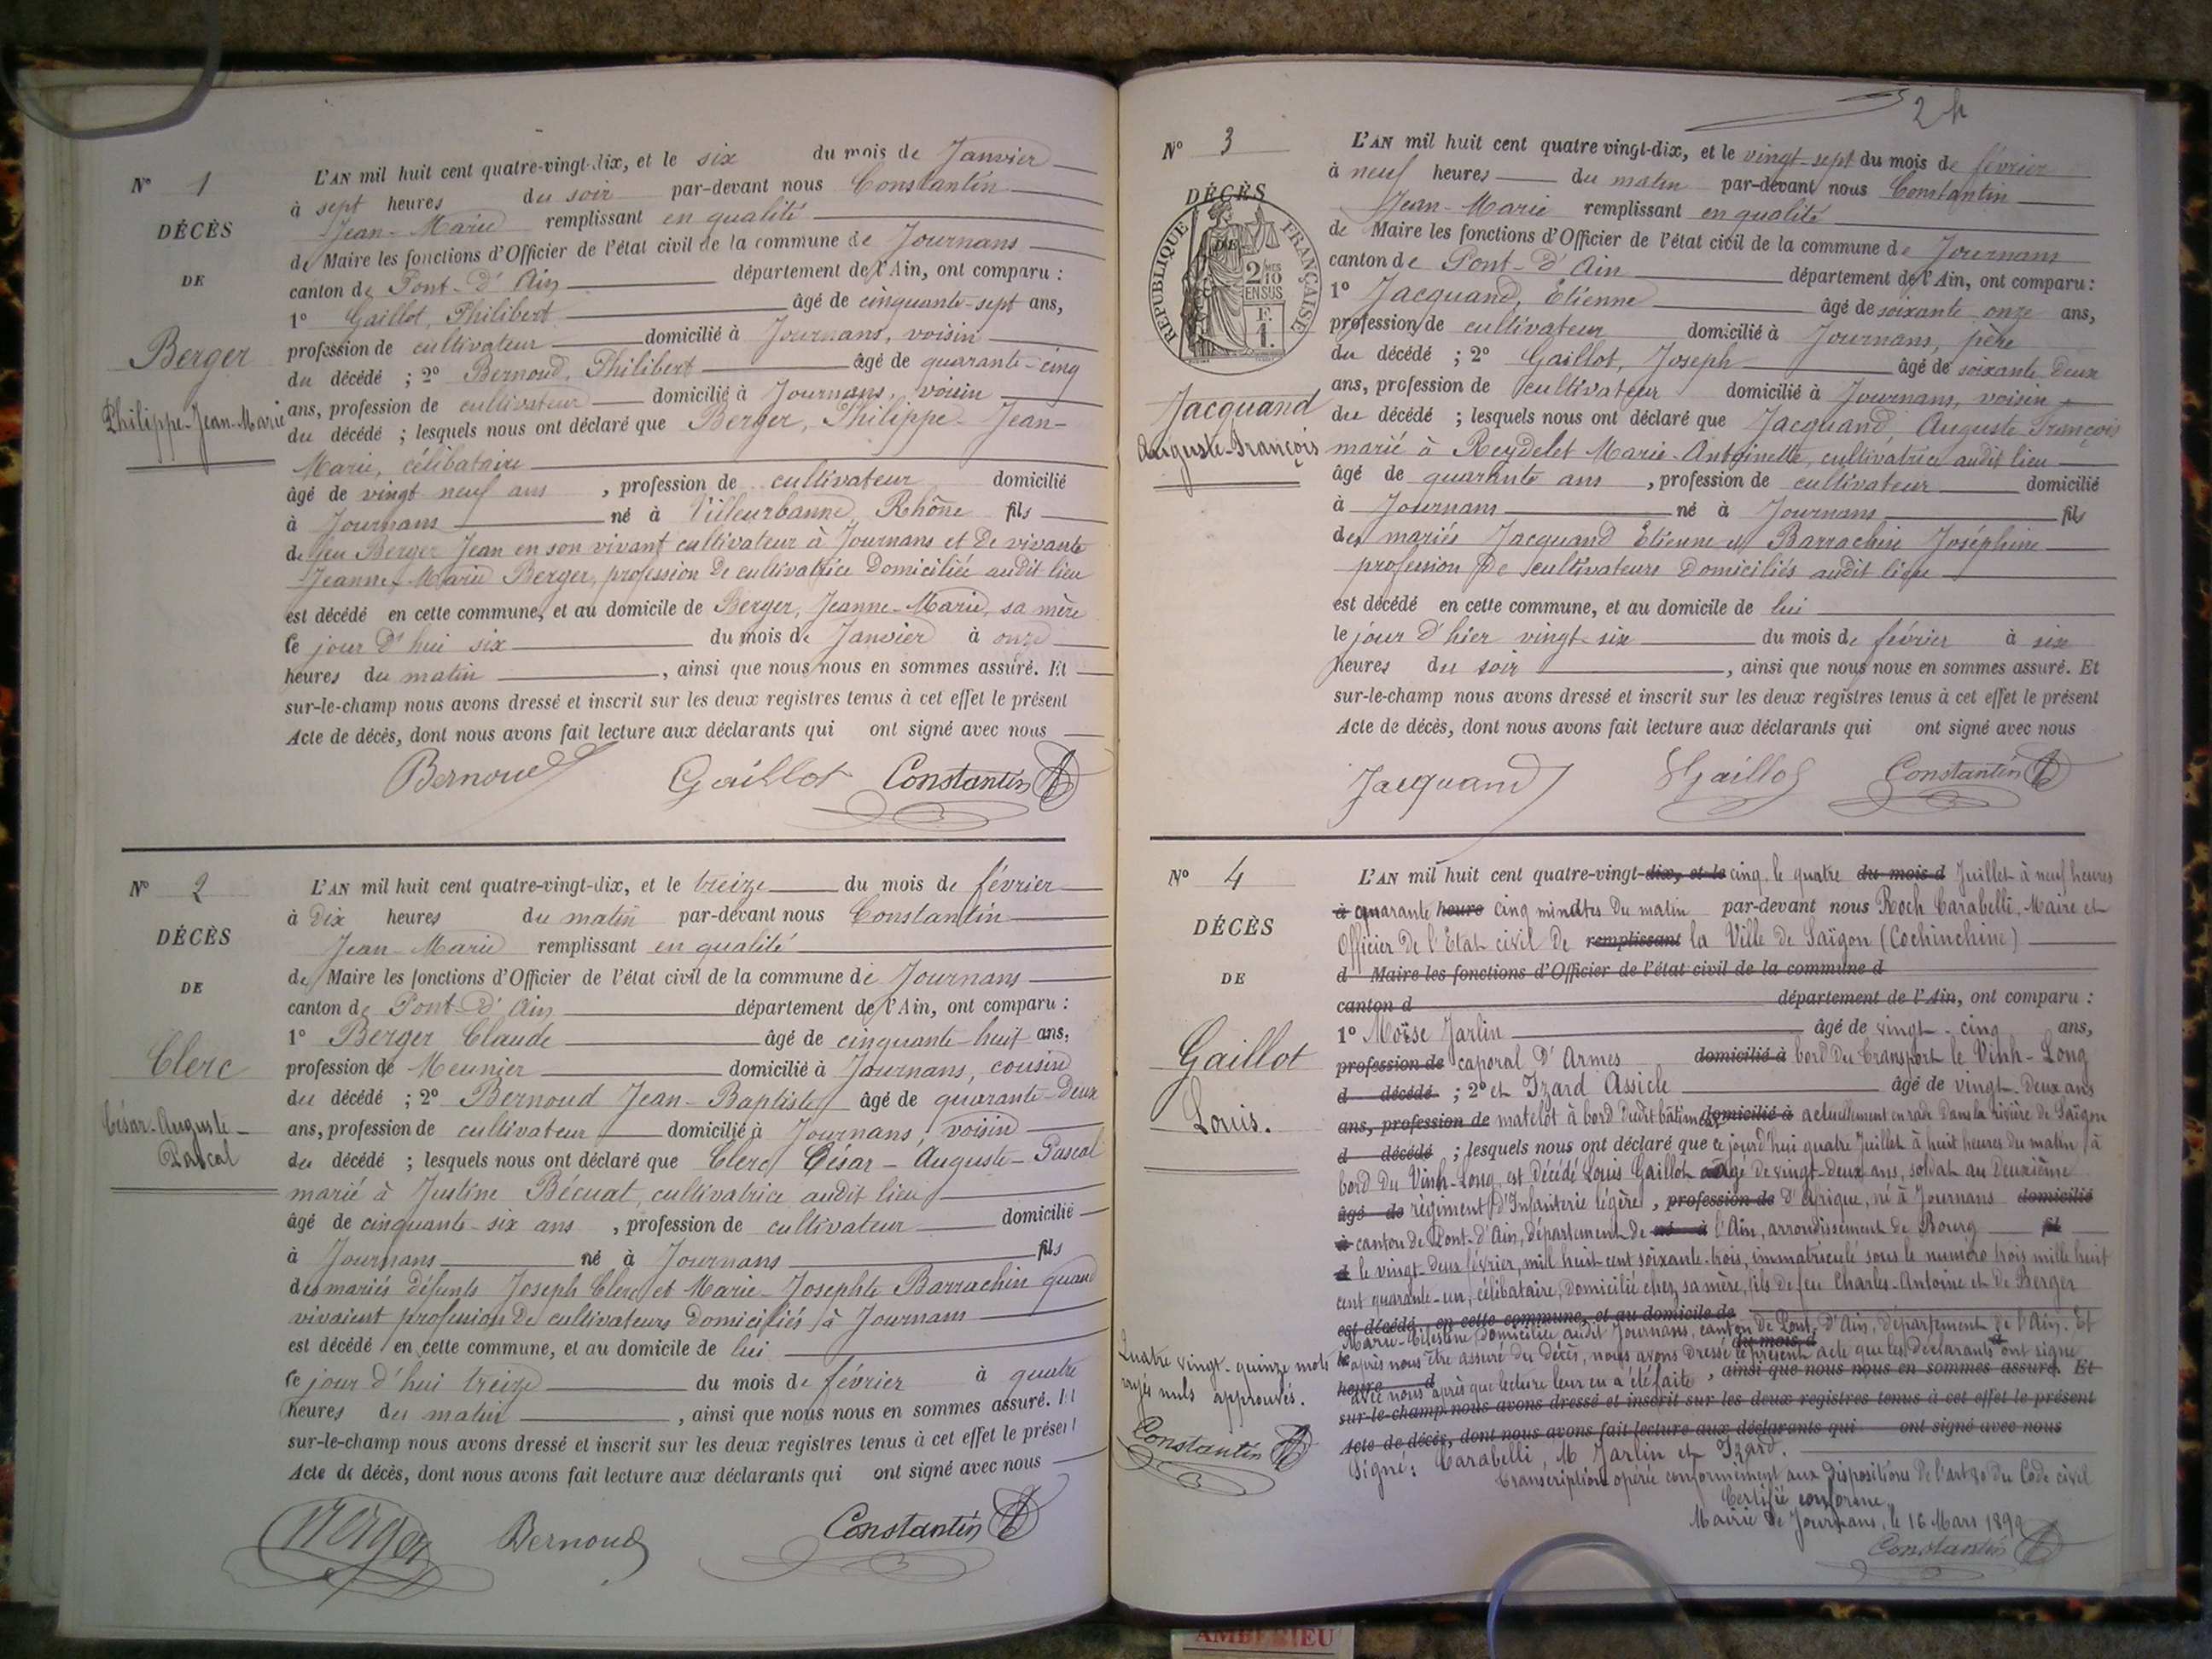 N° 1
DÉCÈS
DE
Berger
Philippe-Jean-Marie
L'AN mil huit cent quatre-vingt-dix, et le six du mois de Janvier
à sept heures du soir par-devant nous Constantin
Jean-Marie remplissant en qualité
de Maire les fonctions d'Officier de l'état civil de la commune de Journans
canton de Pont-d'Ain département de l'Ain, ont comparu :
1° Gaillot, Philibert âgé de cinquante-sept ans,
profession de cultivateur domicilié à Journans, voisin
du décédé ; 2° Bernoud, Philibert âgé de quarante-cinq
ans, profession de cultivateur domicilié à Journans, voisin
du décédé ; lesquels nous ont déclaré que Berger, Philippe-Jean-
Marie, célibataire
âgé de vingt neuf ans , profession de cultivateur domicilié
à Journans né à Villeurbanne Rhône fils
de feu Berger Jean en son vivant cultivateur à Journans et de vivante
Jeanne-Marie Berger, profession de cultivatrice domiciliée audit lieu
est décédé en cette commune, et au domicile de Berger, Jeanne-Marie, sa mère
ce jour d'hui six du mois de Janvier à onze
heures du matin , ainsi que nous nous en sommes assuré. Et
sur-le-champ nous avons dressé et inscrit sur les deux registres tenus à cet effet le présent
Acte de décès, dont nous avons fait lecture aux déclarants qui ont signé avec nous
Bernoud Gaillot Constantin
N° 2
DÉCÈS
DE
Clerc
César-Auguste-
Pascal
L'AN mil huit cent quatre-vingt-dix, et le treize du mois de février
à dix heures du matin par-devant nous Constantin
Jean-Marie remplissant en qualité
de Maire les fonctions d'Officier de l'état civil de la commune de Journans
canton de Pont-d'Ain département de l'Ain, ont comparu :
1° Berger Claude âgé de cinquante-huit ans,
profession de Meunier domicilié à Journans, cousin
du décédé ; 2° Bernoud Jean-Baptiste âgé de quarante-deux
ans, profession de cultivateur domicilié à Journans, voisin
du décédé ; lesquels nous ont déclaré que Clerc César-Auguste-Pascal
marié à Justine Bécuat, cultivatrice audit lieu
âgé de cinquante-six ans , profession de cultivateur domicilié
à Journans né à Journans fils
des mariés défunts Joseph Clerc et Marie-Josephte Barrachin quand
vivaient profession de cultivateurs domiciliés à Journans
est décédé en cette commune, et au domicile de lui
ce jour d'hui treize du mois de février à quatre
heures du matin , ainsi que nous nous en sommes assuré. Et
sur-le-champ nous avons dressé et inscrit sur les deux registres tenus à cet effet le présent
Acte de décès, dont nous avons fait lecture aux déclarants qui ont signé avec nous
Berger Bernoud Constantin
2
N° 3
DÉCÈS
DE
RÉPUBLIQUE FRANÇAISE
2 MES
10
EN SUS
F.
1.
Jacquand
Auguste-François
L'AN mil huit cent quatre vingt-dix, et le vingt-sept du mois de février
à neuf heures du matin par-devant nous Constantin
Jean-Marie remplissant en qualité
de Maire les fonctions d'Officier de l'état civil de la commune de Journans
canton de Pont-d'Ain département de l'Ain, ont comparu :
1° Jacquand, Etienne âgé de soixante onze ans,
profession de cultivateur domicilié à Journans, père
du décédé ; 2° Gaillot, Joseph âgé de soixante-deux
ans, profession de cultivateur domicilié à Journans, voisin
du décédé ; lesquels nous ont déclaré que Jacquand, Auguste François
marié à Reydelet Marie-Antoinette, cultivatrice audit lieu
âgé de quarante ans , profession de cultivateur domicilié
à Journans né à Journans fils
des mariés Jacquand Etienne et Barrachin Joséphine
profession de cultivateurs domiciliés audit lieu
est décédé en cette commune, et au domicile de lui
le jour d'hier vingt-six du mois de février à six
heures du soir , ainsi que nous nous en sommes assuré. Et
sur-le-champ nous avons dressé et inscrit sur les deux registres tenus à cet effet le présent
Acte de décès, dont nous avons fait lecture aux déclarants qui ont signé avec nous
Jacquand Gaillot Constantin
N° 4
DÉCÈS
DE
Gaillot
Louis.
Quatre vingt-quinze mots
rayés nuls approuvés.
Constantin
L'AN mil huit cent quatre-vingt-dix, et le cinq. le quatre du mois d Juillet à neuf heures
à quarante heure cinq minutes du matin par-devant nous Roch Carabelli, Maire et
Officier de l'Etat civil de remplissant la Ville de Saïgon (Cochinchine)
d Maire les fonctions d'Officier de l'état civil de la commune d
canton d département de l'Ain, ont comparu :
1° Moïse Jarlin âgé de vingt-cinq ans,
profession de caporal d'Armes domicilié à bord du transport le Vinh-Long
d décédé ; 2° et Izard Assicle âgé de vingt-deux ans
ans, profession de matelot à bord dudit bâtiment domicilié à actuellement en rade dans la rivière de Saïgon
d décédé ; lesquels nous ont déclaré que ce jourd'hui quatre Juillet à huit heures du matin, à
bord du Vinh-Long, est décédé Louis Gaillot âgé de vingt-deux ans, soldat au deuxième
âgé de régiment d'Infanterie légère, profession de d'Afrique, né à Journans domicilié
à canton de Pont-d'Ain, département de né à l'Ain, arrondissement de Bourg fil
d le vingt-deux février, mil huit-cent soixante-trois, immatriculé sous le numéro trois mille huit
cent quarante-un, célibataire, domicilié chez sa mère, fils de feu Charles-Antoine et de Berger
est décédé en cette commune, et au domicile de
Marie-Célestine, domiciliée audit Journans, canton de Pont-d'Ain, département de l'Ain. Et
le du mois d à
après nous être assuré du décès, nous avons dressé le présent acte que les déclarants ont signé
heure d , ainsi que nous nous en sommes assuré. Et
avec nous après que lecture leur en a été faite
sur-le-champ nous avons dressé et inscrit sur les deux registres tenus à cet effet le présent
Acte de décès, dont nous avons fait lecture aux déclarants qui ont signé avec nous
Signé : Carabelli, M. Jarlin et Izard.
Transcription opérée conformément aux dispositions de l'art 80 du Code civil
Certifié conforme,
Mairie de Journans, le 16 Mars 1890
Constantin
AMBERIEU